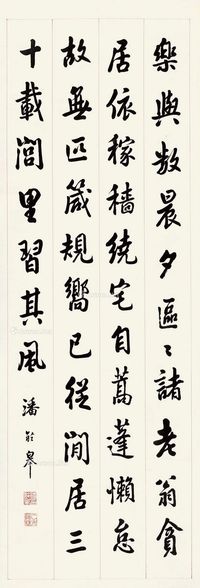 樂與數晨夕區〻諸老翁貧
居依稼穡繞宅自蒿蓬懶怠
故無匹箴規嚮已從閒居三
十載閭里習其風
潘齡皋